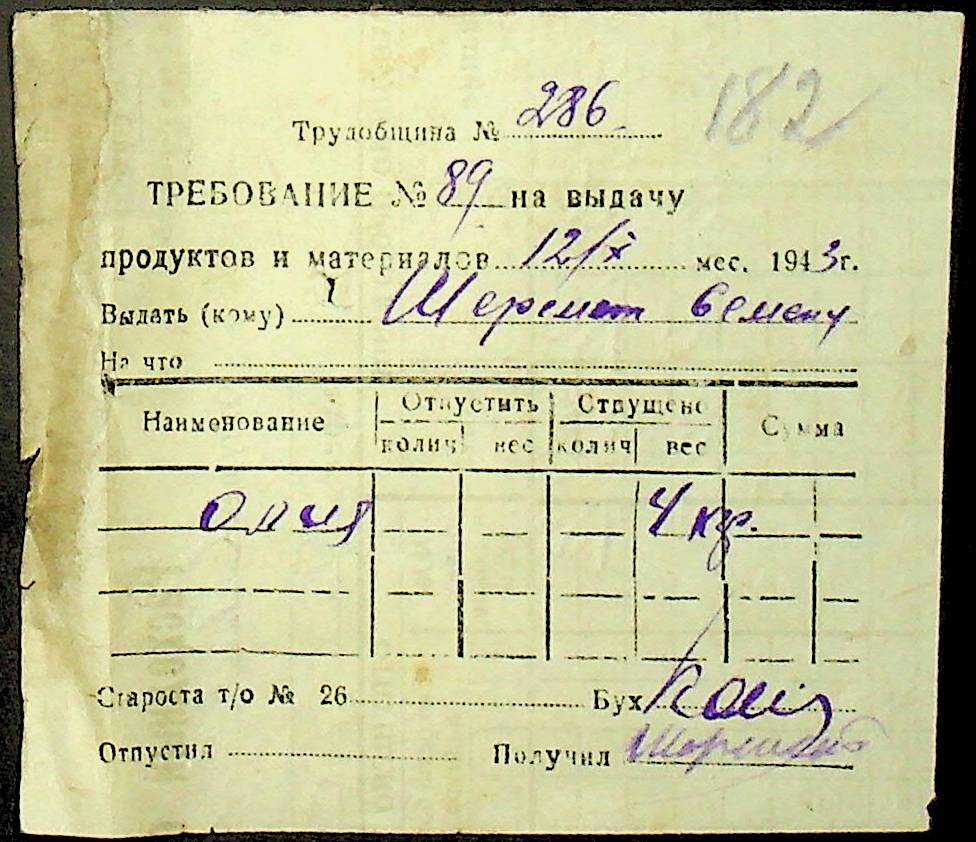 182
Трудобщина № 286
ТРЕБОВАНИЕ № 89 на выдачу
продуктов и материалов 12/X мес. 1943 г.
Выдать (кому) Шеремет Семену
На что
Наименование Отпустить Отпущено Сумма
колич вес колич вес
Олия 4 кгр.
Староста т/о № 26 Бух
Отпустил Получил